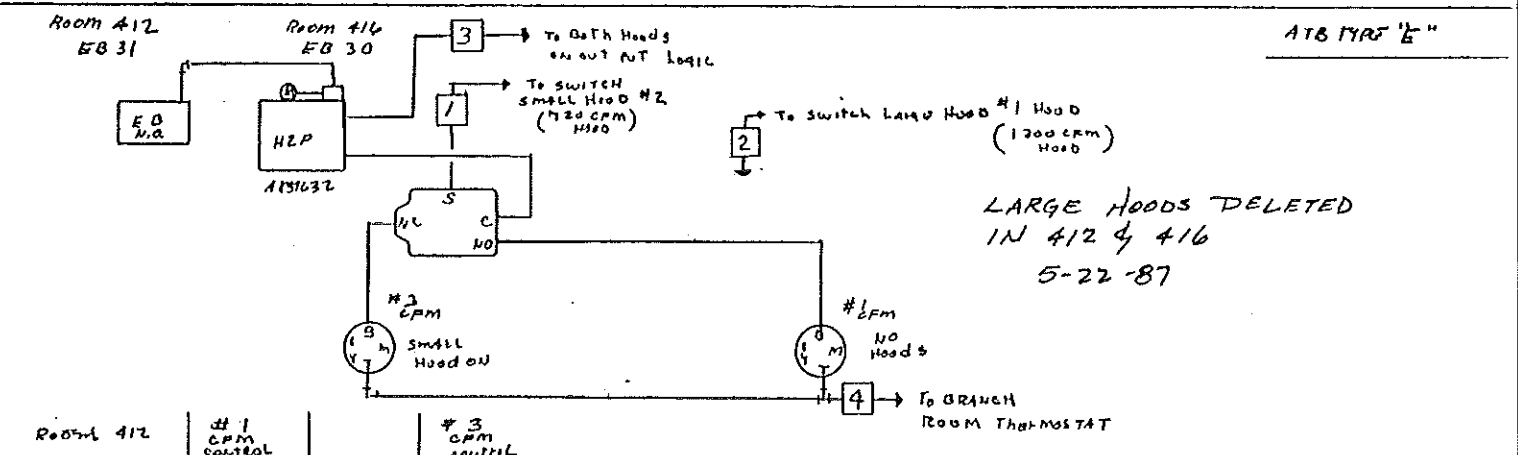 Room 412
EB 31
Room 416
EB 30
3
To Both Hoods
ON OUT PUT LOGIC
ATB TYPE "E"
1
To SWITCH
SMALL HOOD #2
(720 CFM)
HOOD
2
To Switch LARGE HOOD #1 HOOD
(1200 CFM)
HOOD
H2P
S
NC
C
NO
LARGE HOODS DELETED
IN 412 & 416
5-22-87
#3
CFM
B
M
T
SMALL
HOOD ON
#1
CFM
M
T
NO
HOODS
4
To BRANCH
ROOM THERMOSTAT
Room 412
#1
CFM
CONTROL
#3
CFM
CONTROL